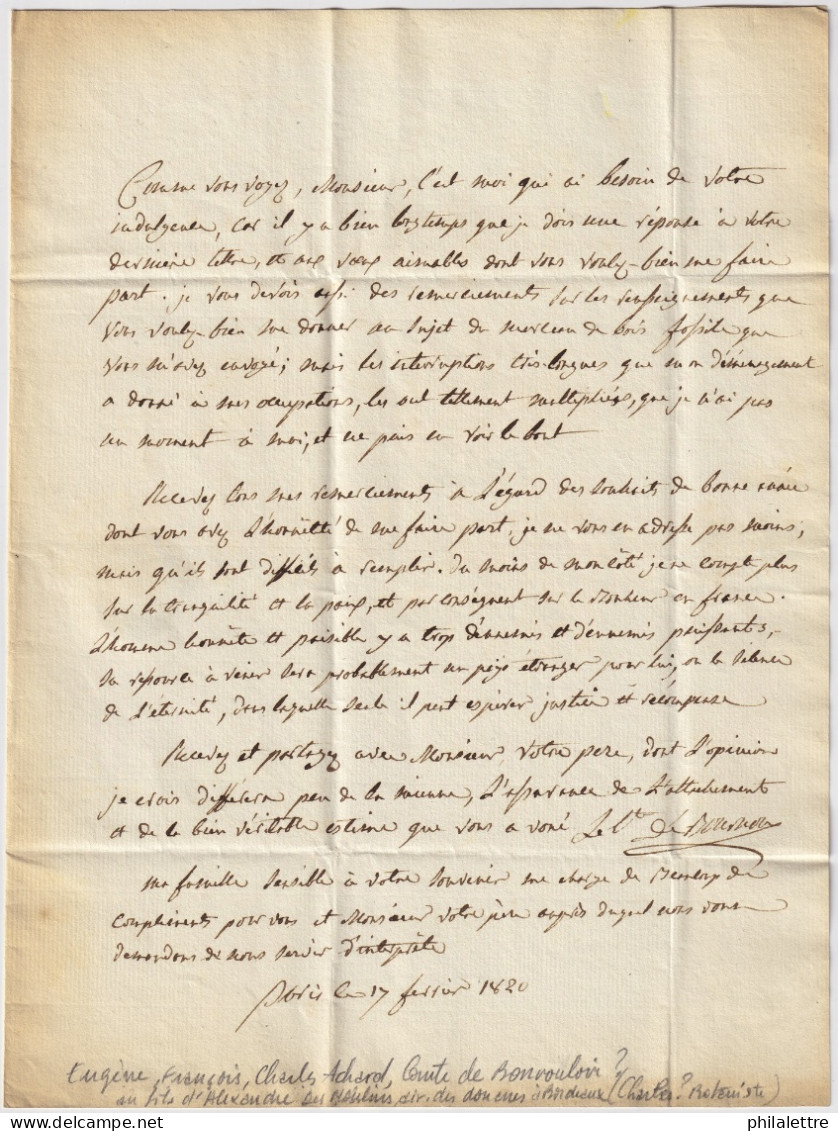 Comme vous voyez, Monsieur, c'est moi qui ai besoin de votre
indulgence, car il y a bien longtemps que je dois une réponse à votre
dernière lettre, et aux vœux aimables dont vous voulez-bien me faire
part. je vous devois aussi des remerciements sur les renseignements que
vous voulez-bien me donner au sujet du morceau de bois fossile que
vous m'avez envoyé; mais les interruptions très-longues que mon déménagement
a donné à mes occupations, les ont tellement multipliées, que je n'ai pas
un moment à moi, et ne puis en voir le bout
Recevez tous mes remerciements à l'égard des souhaits de bonne année
dont vous avez l'honnêteté de me faire part, je ne vous en adresse pas moins,
mais qu'ils sont difficils à remplir. Du moins de mon côté je ne compte plus
sur la tranquilité et la paix, et par conséquent sur le bonheur en france.
L'homme honnête et paisible y a trop d'ennemis et d'ennemis puissants,
sa ressource à venir sera probablement un pays étranger pour lui, ou le silence
de l'éternité, dans laquelle seule il peut espérer justice et récompense
Recevez et partagez avec Monsieur votre pere, dont l'opinion
je crois différera peu de la mienne, l'assurance de l'attachement
et de la bien véritable estime que vous a voué Le Cte De Bournon
ma famille sensible à votre souvenir me charge de Beaucoup de
compliments pour vous et Monsieur votre père auprès duquel nous vous
demandons de nous servir d'interprête
Paris le 17 fevrier 1820
Eugène, François, Charles Achard, Comte de Bonvouloir?
au fils d'Alexandre Des Moulins, dir. des douanes à Bordeaux (Charles? Botaniste)
philalettre
delcampe.net